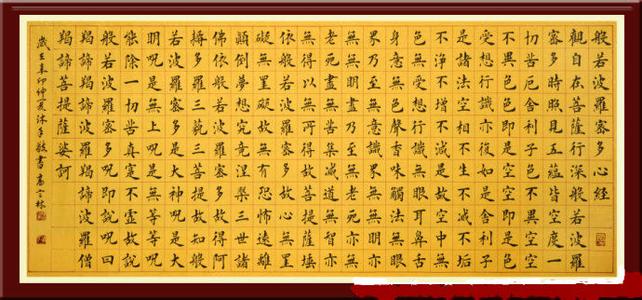 般若波羅蜜多心經
觀自在菩薩行深般若波羅
蜜多時照見五蘊皆空度一
切苦厄舍利子色不異空空
不異色色即是空空即是色
受想行識亦復如是舍利子
是諸法空相不生不滅不垢
不淨不增不減是故空中無
色無受想行識無眼耳鼻舌
身意無色聲香味觸法無眼
界乃至無意識界無無明亦
無無明盡乃至無老死亦無
老死盡無苦集滅道無智亦
無得以無所得故菩提薩埵
依般若波羅蜜多故心無罣
礙無罣礙故無有恐怖遠離
顛倒夢想究竟涅槃三世諸
佛依般若波羅蜜多故得阿
耨多羅三藐三菩提故知般
若波羅蜜多是大神呪是大
明呪是無上呪是無等等呪
能除一切苦真實不虛故說
般若波羅蜜多呪即說呪曰
羯諦羯諦波羅羯諦波羅僧
羯諦菩提薩婆訶
歲在辛卯仲夏沐手敬書